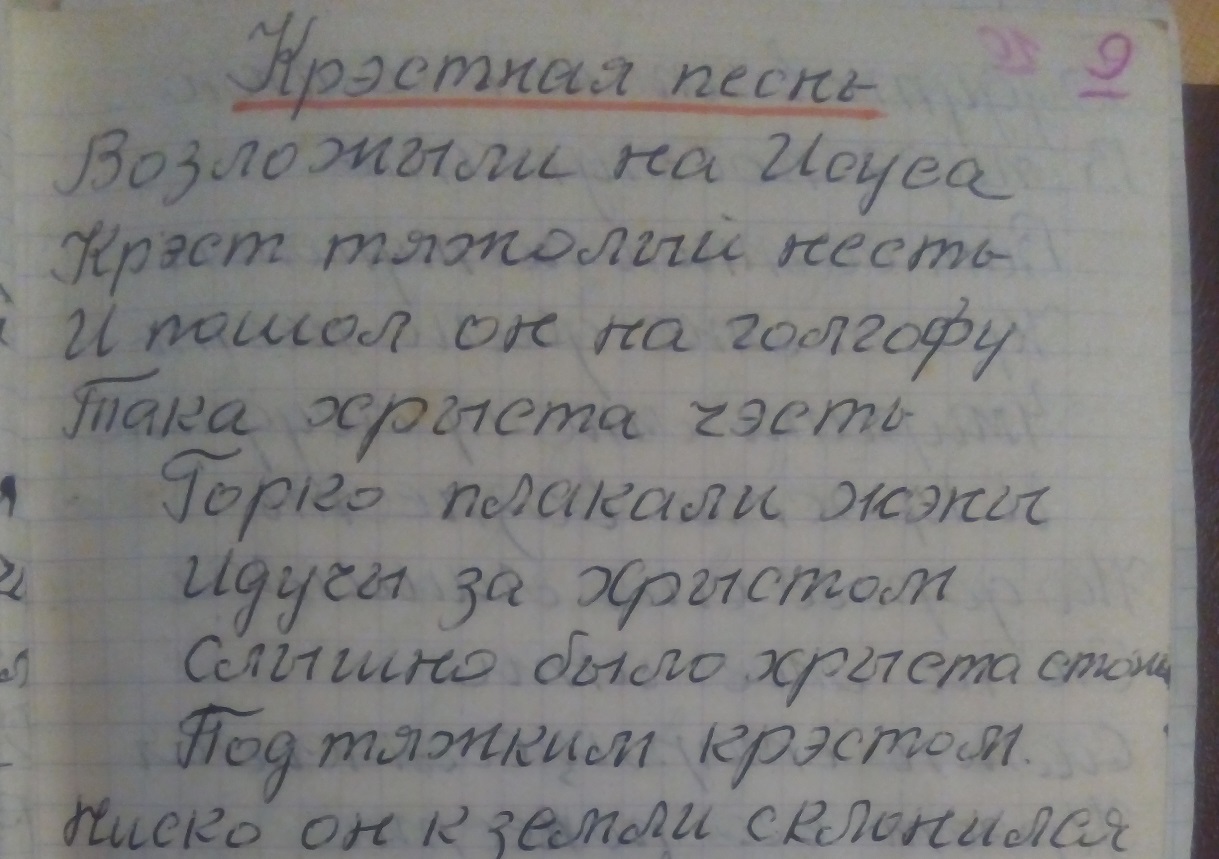 Крэстная песнь 9
Возложыли на Исуса
Крэст тяжолый несть
И пошол он на голгофу
Така хрыста чэсть
Горко плакали жэны
Идучы за хрыстом
Слышно было хрыста стоны
Под тяжким крэстом.
Ниско он к земли склонился